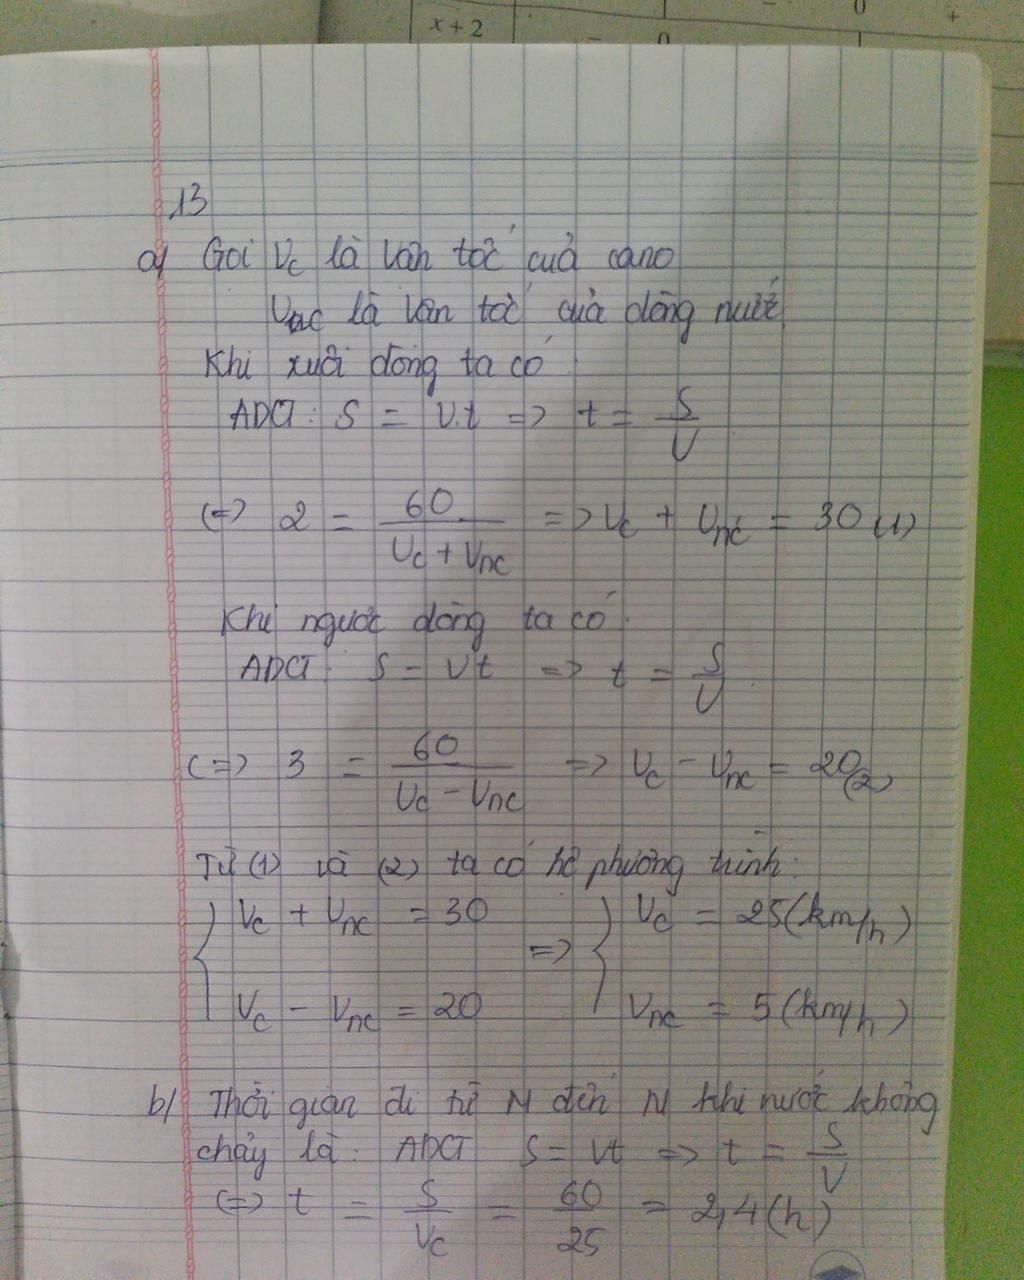 x + 2
0
0
+
13
a) Gọi Vc là vận tốc của cano
Vnc là vận tốc của dòng nước
Khi xuôi dòng ta có
ADCT: S = V.t => t = S/V
(=> 2 = 60/(Vc + Vnc) => Vc + Vnc = 30 (1)
Khi ngược dòng ta có
ADCT: S = Vt => t = S/V
(=> 3 = 60/(Vc - Vnc) => Vc - Vnc = 20 (2)
Từ (1) và (2) ta có hệ phương trình:
{ Vc + Vnc = 30 => { Vc = 25 (km/h)
Vc - Vnc = 20 Vnc = 5 (km/h)
b) Thời gian đi từ M đến N khi nước không
chảy là: ADCT S = Vt => t = S/V
(=> t = S/Vc = 60/25 = 2,4 (h)